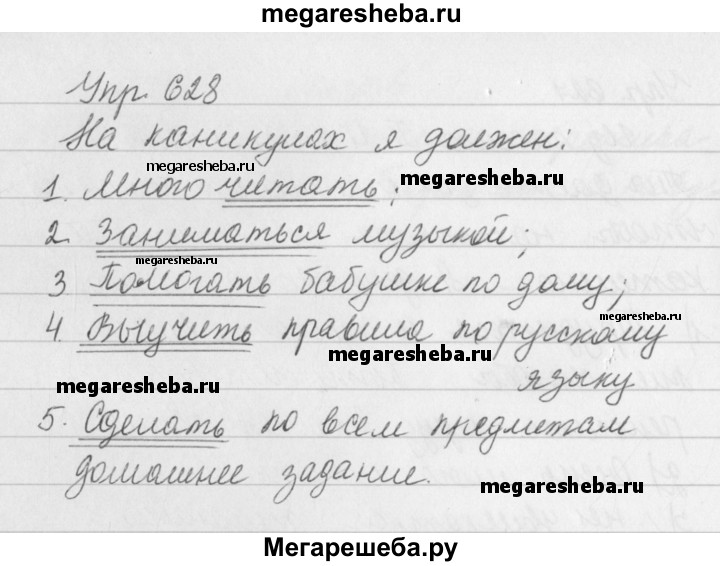 megaresheba.ru
Упр. 628
На каникулах я должен:
megaresheba.ru
megaresheba.ru
1. Много читать;
2. Заниматься музыкой;
megaresheba.ru
3 Помогать бабушке по дому;
megaresheba.ru
4. Выучить правила по русскому
megaresheba.ru
языку
megaresheba.ru
5. Сделать по всем предметам
домашнее задание.
megaresheba.ru
Мегарешеба.ру